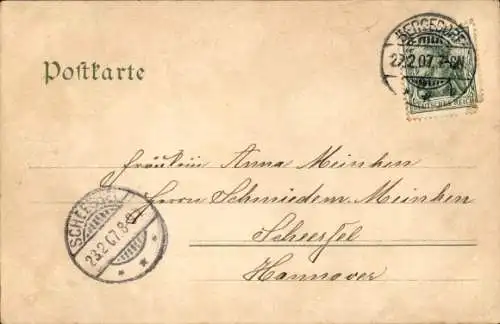 Postkarte
BERGEDORF
27.2.07. 7-8N
DEUTSCHES REICH
Fräulein Anna Meinken
Herrn Schmiedem. Meinken
Scheeßel
Hannover
SCHEESSEL
28.2.07. 8-9V